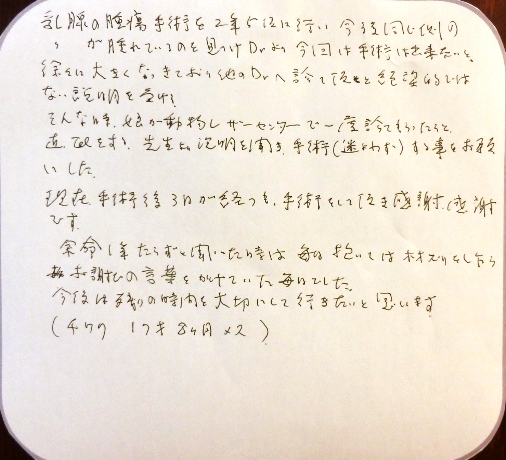 乳腺の腫瘍手術を2年5位に行い 今を同じ側の
が腫れているのを見つけDrより今回は手術は出来ないと
徐々に大きくなってきており他のDrへ診て頂くと絶望的では
ない説明を受け
そんな時、娘が動物レーザーセンターで一度診てもらったらと
直 TELをする 先生より説明を聞き、手術(迷わず)する事をお願
いした。
現在 手術後3日が経つも、手術をして頂き感謝、感謝
です。
余命1年たらずと聞いた時は 毎日抱いては ホホズリをしながら
お詫びの言葉をかけていた毎日でした。
今後は残りの時間を大切にして行きたいと思います
(チワワ 17才8ヶ月 メス)